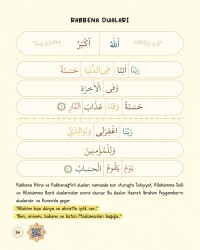 RABBENA DUALARI
اَللّٰهُ اَكْبَرُ
رَبَّنَا اٰتِنَا فِى الدُّنْيَا حَسَنَةً
وَفِى الْاٰخِرَةِ
حَسَنَةً وَقِنَا عَذَابَ النَّارِ
رَبَّنَا اغْفِرْلٖى وَلِوَالِدَىَّ
وَلِلْمُؤْمِنٖينَ
يَوْمَ يَقُومُ الْحِسَابُ
Rabbena Atina ve Rabbenağfirli duaları namazda son oturuşta Tahiyyat, Allahümme Salli
ve Allahümme Barik dualarından sonra okunur. Bu dualar Hazreti İbrahim Peygamber'in
dualarıdır ve Kuranda geçer.
"Allahım bize dünya ve ahirette iyilik ver."
"Beni, annemi, babamı ve bütün Müslümanları bağışla."
54